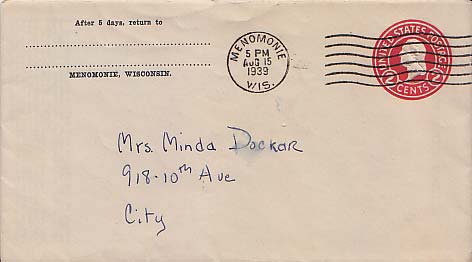 After 5 days, return to
MENOMONIE, WISCONSIN.
MENOMONIE
5 PM
AUG 15
1939
WIS.
UNITED STATES POSTAGE
2 CENTS 2
Mrs. Minda Dockar
918-10th Ave
City